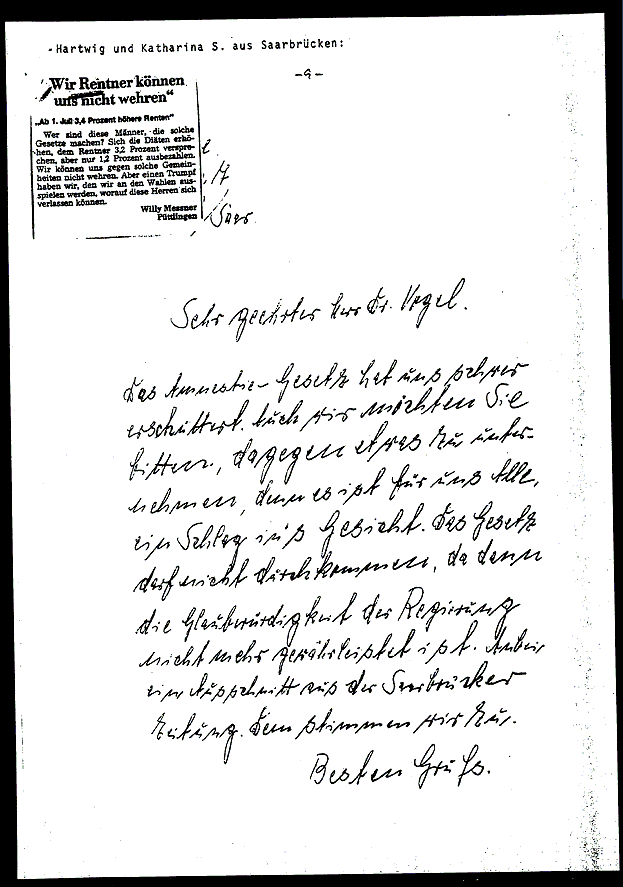 -Hartwig und Katharina S. aus Saarbrücken:
-9-
„Wir Rentner können
uns nicht wehren“
„Ab 1. Juli 3,4 Prozent höhere Renten“
Wer sind diese Männer, die solche
Gesetze machen? Sich die Diäten erhö-
hen, dem Rentner 3,2 Prozent verspre-
chen, aber nur 1,2 Prozent ausbezahlen.
Wir können uns gegen solche Gemein-
heiten nicht wehren. Aber einen Trumpf
haben wir, den wir an den Wahlen aus-
spielen werden, worauf diese Herren sich
verlassen können.
Willy Messner
Püttlingen
17
Saar
Sehr geehrter Herr Dr. Vogel.
Das Amnestie-Gesetz hat uns schwer
erschüttert. Auch wir möchten Sie
bitten, dagegen etwas zu unter-
nehmen, denn es ist für uns Alle,
ein Schlag in's Gesicht. Das Gesetz
darf nicht durchkommen, da dann
die Glaubwürdigkeit der Regierung
nicht mehr gewährleistet ist. Anbei
ein Ausschnitt aus der Saarbrücker
Zeitung. Dem stimmen wir zu.
Besten Gruß.